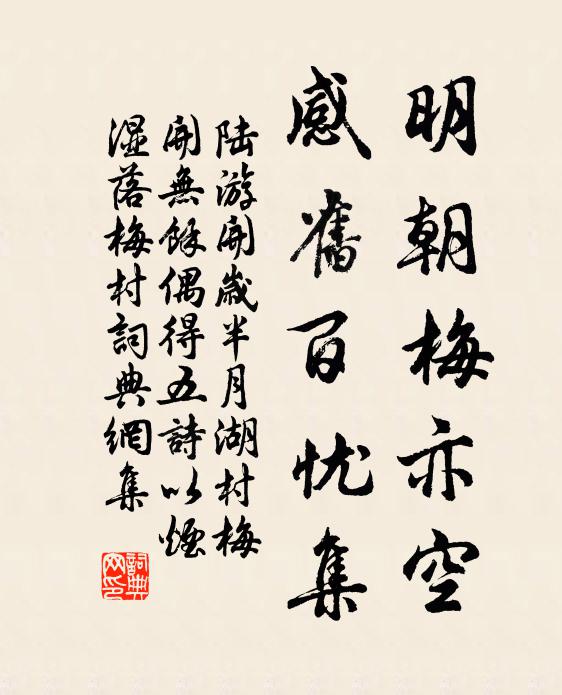 明朝梅亦空
感舊百忧集
陆游開歲半月湖村梅
開無餘偶得五詩以煙
湿落梅村詞典網集
詞典
网印